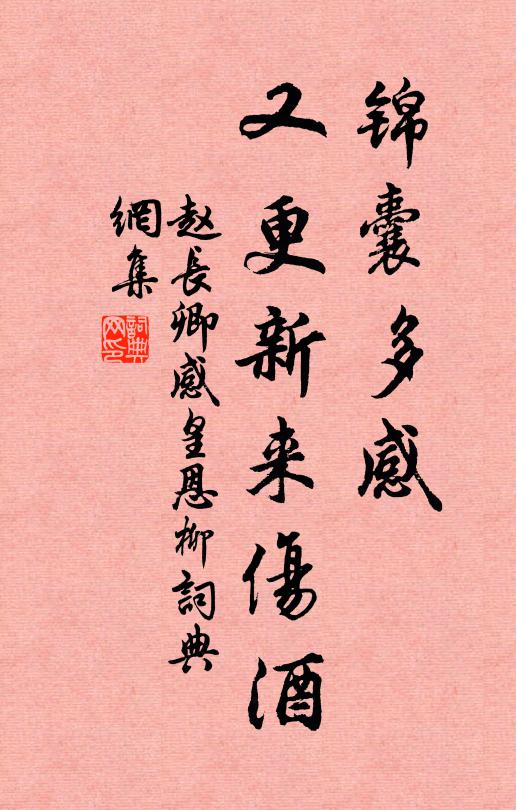 锦囊多感
又更新来傷酒
赵長卿感皇恩柳詞典
網集
詞典
网印